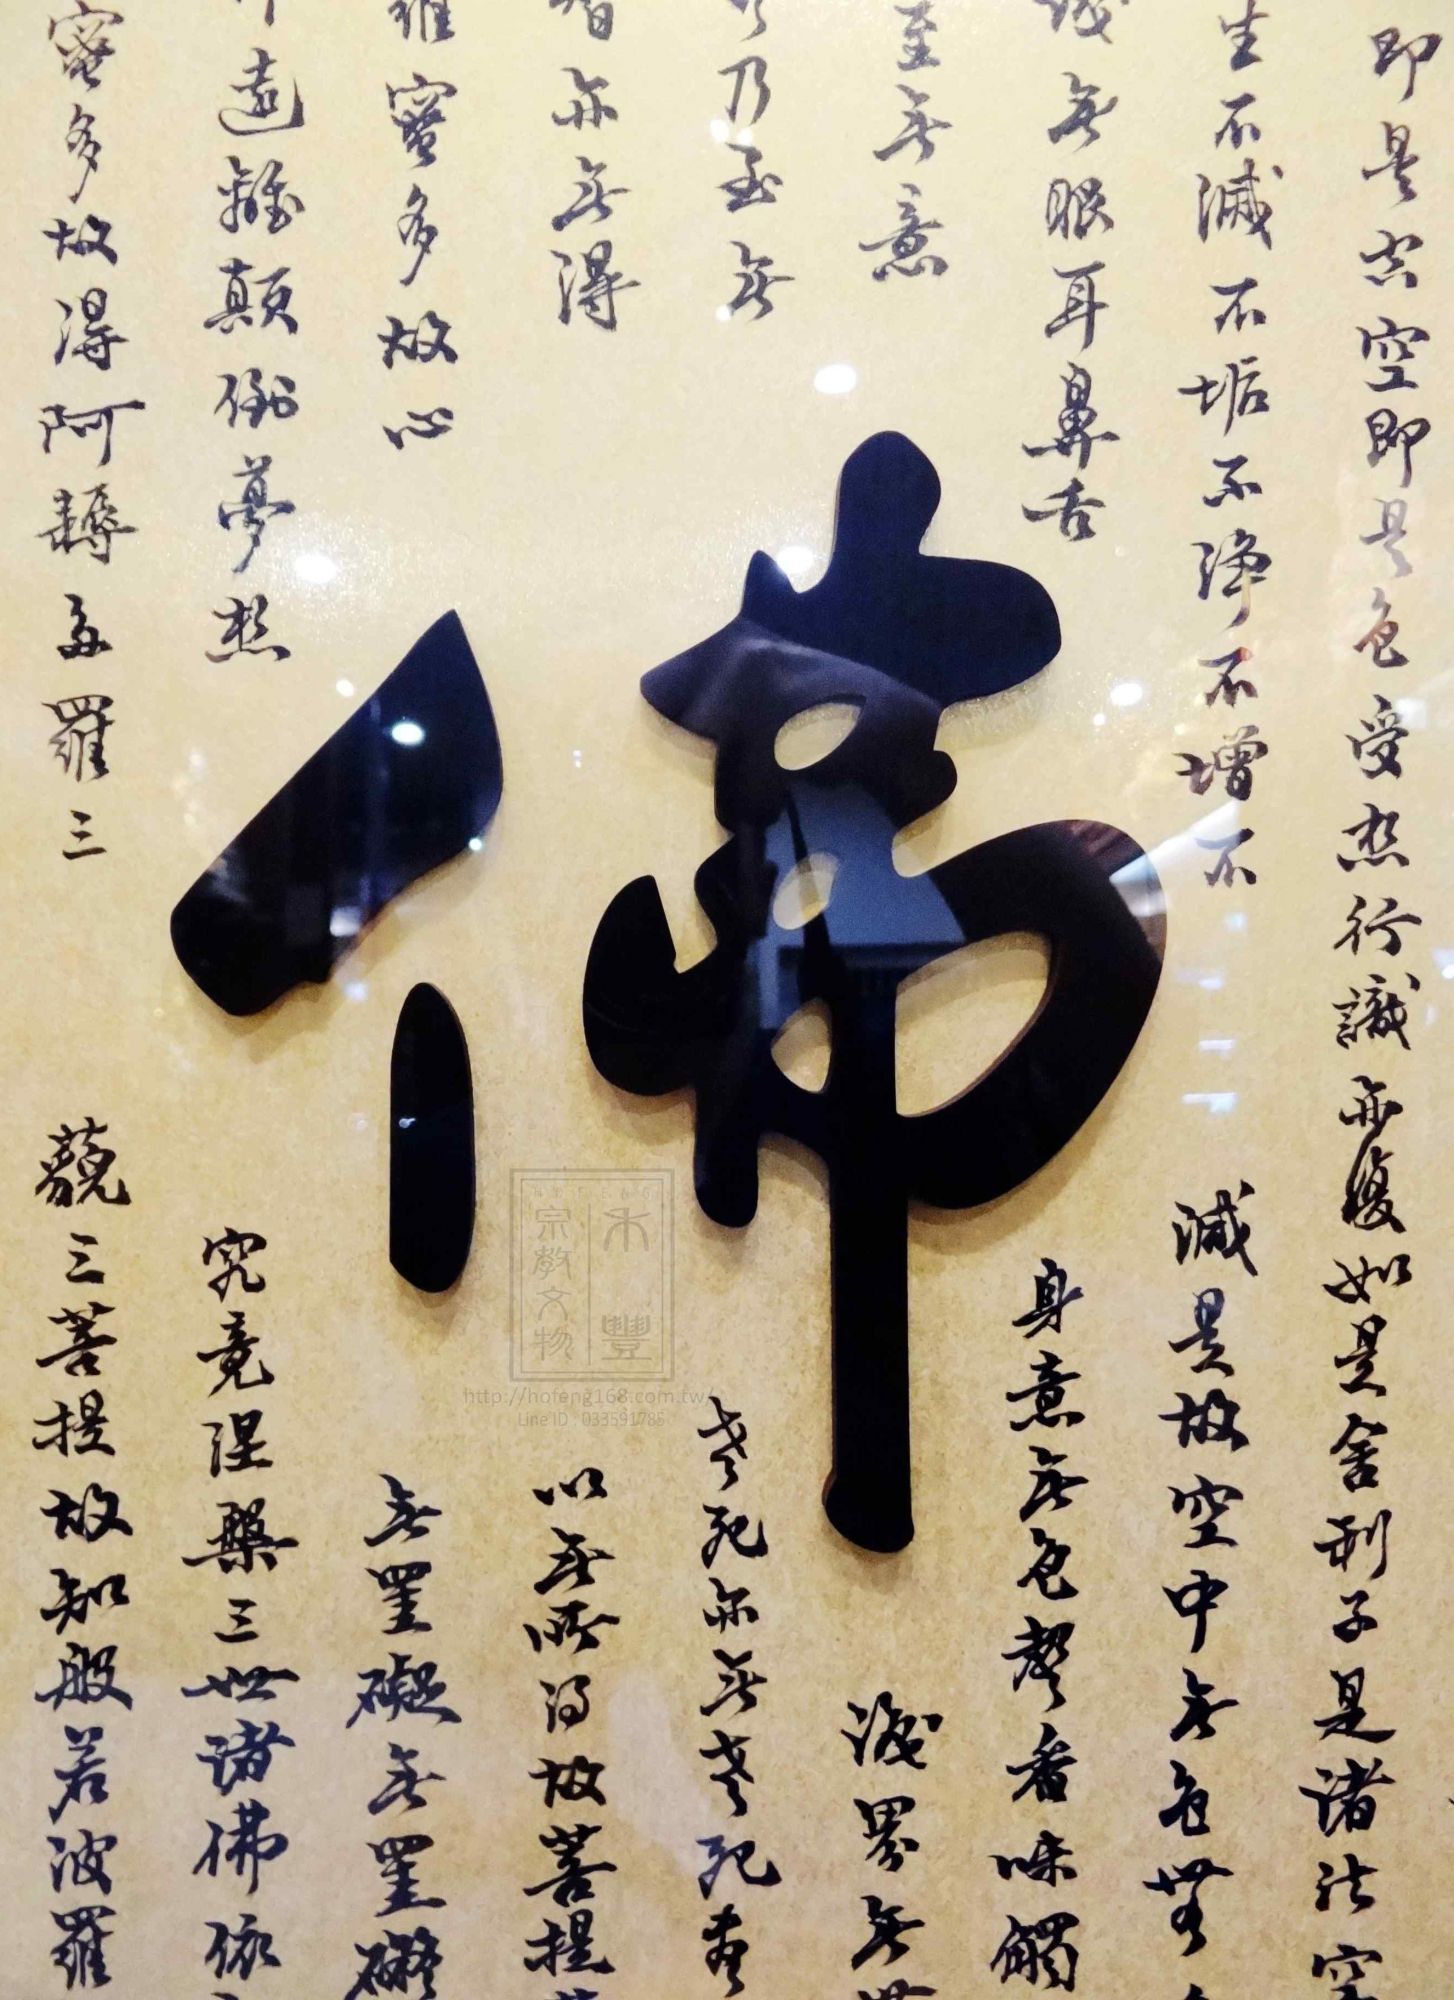 即是空空即是色受想行識亦復如是舍利子是諸法空
生不滅不垢不淨不增不
減是故空中無色無
無眼耳鼻舌
身意無色聲香味觸
至無意
識界無無
乃至無
老死亦無老死盡
智亦無得
以無所得故菩提
羅蜜多故心
無罣礙無罣礙
遠離顛倒夢想
究竟涅槃三世諸佛依
蜜多故得阿耨多羅三
藐三菩提故知般若波羅
佛
禾豐
宗教文物
HOFENG
http://hofeng168.com.tw/
Line ID : 033591785